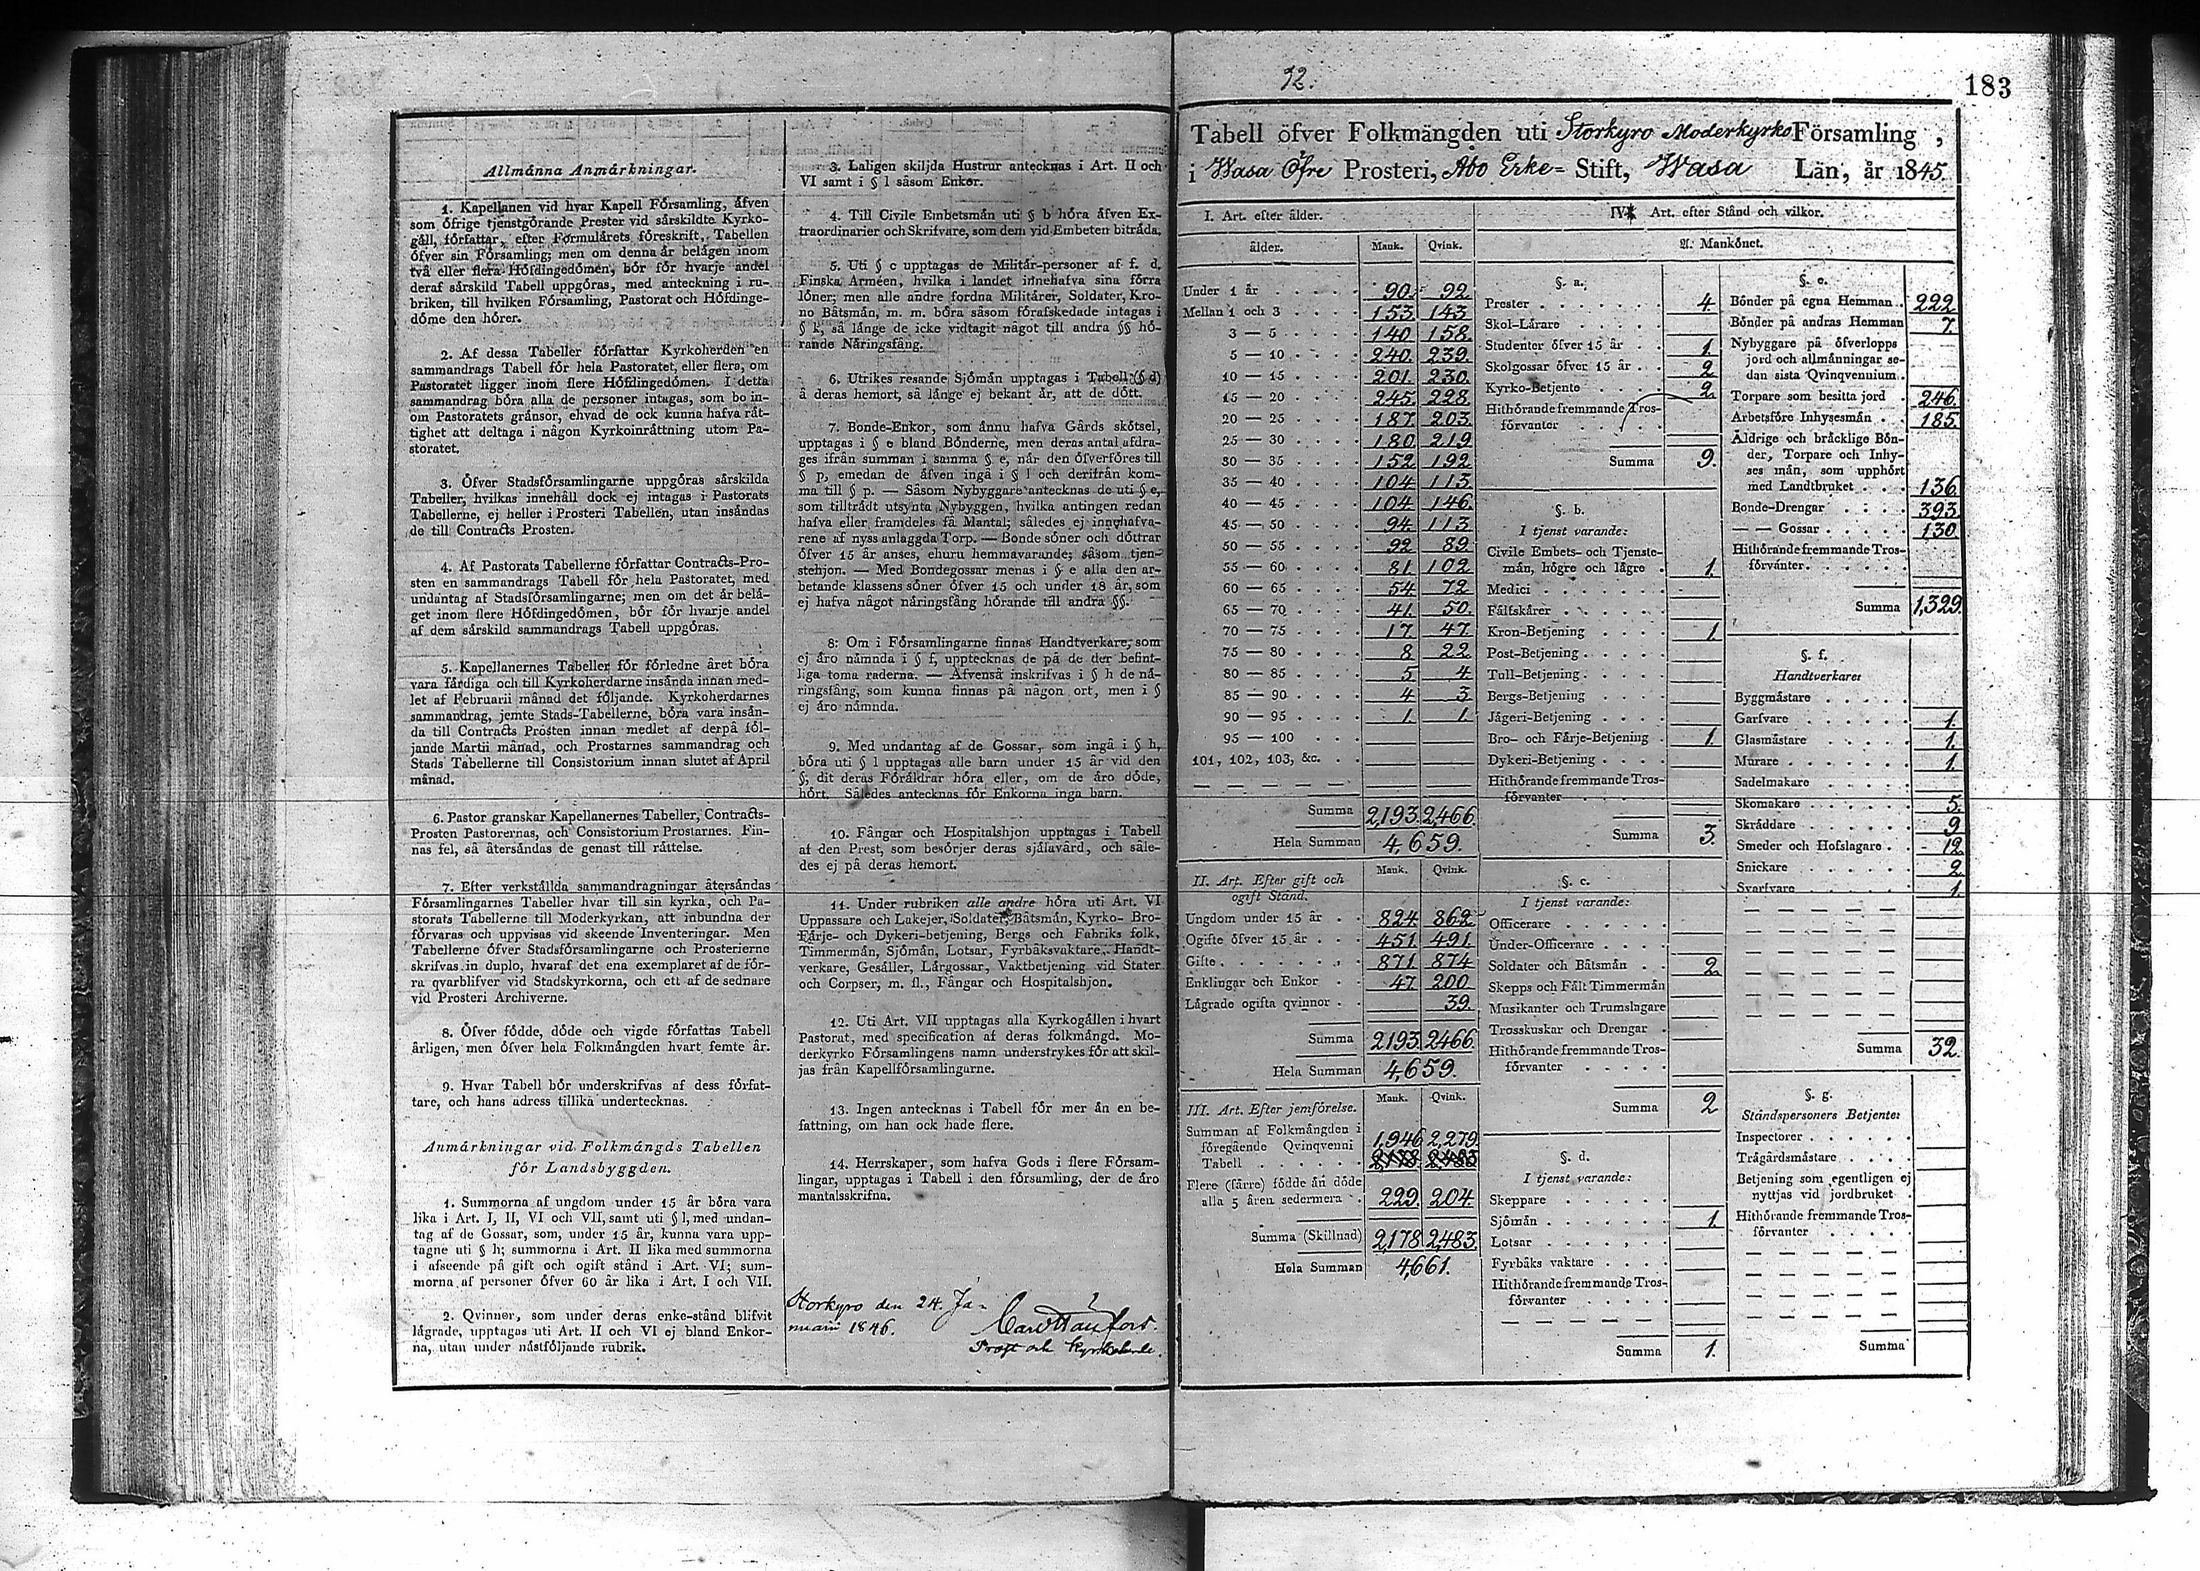 Allmånna Anmårkningar.
1. Kapellanen vid hvar Kapell Fórsamling, åfven
som ófrige tjenstgórande Prester vid sårskildte Kyrko-
gåll, fórfattar, efter Formulårets fóreskrift, Tabellen
ófver sin Fórsamling; men om denna år belågen inom
två eller flera Hófdingedómen, bór fór hvarje andel
deraf sårskild Tabell uppgóras, med anteckning i ru-
briken, till hvilken Fórsamling, Pastorat och Hófdinge-
dóme den hórer.
2. Af dessa Tabeller fórfattar Kyrkoherden en
sammandrags Tabell fór hela Pastoratet, eller flera, om
Pastoratet ligger inom flere Hófdingedómen. I detta
sammandrag bóra alla de personer intagas, som bo in-
om Pastoratets grånsor, ehvad de ock kunna hafva råt-
tighet att deltaga i någon Kyrkoinråttning utom Pa-
storatet.
3. Ófver Stadsfórsamlingarne uppgóras sårskilda
Tabeller, hvilkas innehåll dock ej intagas i Pastorats
Tabellerne, ej heller i Prosteri Tabellen, utan insåndas
de till Contracts Prosten.
4. Af Pastorats Tabellerne fórfattar Contracts-Pro-
sten en sammandrags Tabell fór hela Pastoratet, med
undantag af Stadsfórsamlingarne; men om det år belå-
get inom flere Hófdingedómen, bór fór hvarje andel
af dem sårskild sammandrags Tabell uppgóras.
5. Kapellanernes Tabeller fór fórledne året bóra
vara fårdiga och till Kyrkoherdarne insånda innan med-
let af Februarii månad det fóljande. Kyrkoherdarnes
sammandrag, jemte Stads-Tabellerne, bóra vara insån-
da till Contracts Prosten innan medlet af derpå fól-
jande Martii månad, och Prostarnes sammandrag och
Stads Tabellerne till Consistorium innan slutet af April
månad.
6. Pastor granskar Kapellanernes Tabeller, Contracts-
Prosten Pastorernas, och Consistorium Prostarnes. Fin-
nas fel, så återsåndas de genast till råttelse.
7. Efter verkstållda sammandragningar återsåndas
Fórsamlingarnes Tabeller hvar till sin kyrka, och Pa-
storats Tabellerne till Moderkyrkan, att inbundna der
fórvaras och uppvisas vid skeende Inventeringar. Men
Tabellerne ófver Stadsfórsamlingarne och Prosterierne
skrifvas in duplo, hvaraf det ena exemplaret af de fór-
ra qvarblifver vid Stadskyrkorna, och ett af de sednare
vid Prosteri Archiverne.
8. Ófver fódde, dóde och vigde fórfattas Tabell
årligen, men ófver hela Folkmångden hvart femte år.
9. Hvar Tabell bór underskrifvas af dess fórfat-
tare, och hans adress tillika undertecknas.
Anmårkningar vid Folkmångds Tabellen
fór Landsbyggden.
1. Summorna af ungdom under 15 år bóra vara
lika i Art. I, II, VI och VII, samt uti § l, med undan-
tag af de Gossar, som, under 15 år, kunna vara upp-
tagne uti § h; summorna i Art. II lika med summorna
i afseende på gift och ogift stånd i Art. VI; sum-
morna af personer ófver 60 år lika i Art. I och VII.
2. Qvinner, som under deras enke-stånd blifvit
lågrade, upptagas uti Art. II och VI ej bland Enkor-
na, utan under nåstfóljande rubrik.
3. Laligen skiljda Hustrur antecknas i Art. II och
VI samt i § l såsom Enkor.
4. Till Civile Embetsmån uti § b hóra åfven Ex-
traordinarier och Skrifvare, som dem vid Embeten bitråda.
5. Uti § c upptagas de Militår-personer af f. d.
Finska Arméen, hvilka i landet innehafva sina fórra
lóner; men alle andre fordna Militårer, Soldater, Kro-
no Båtsmån, m. m. bóra såsom fórafskedade intagas i
§ k, så långe de icke vidtagit något till andra §§ hó-
rande Nåringsfång.
6. Utrikes resande Sjómån upptagas i Tabell (§ d)
å deras hemort, så långe ej bekant år, att de dótt.
7. Bonde-Enkor, som ånnu hafva Gårds skótsel,
upptagas i § e bland Bónderne, men deras antal afdra-
ges ifrån summan i samma § e, når den ófverfóres till
§ p, emedan de åfven ingå i § l och derifrån kom-
ma till § p. — Såsom Nybyggare antecknas de uti § e,
som tilltrådt utsynta Nybyggen, hvilka antingen redan
hafva eller framdeles få Mantal; således ej innehafva-
rene af nyss anlaggda Torp. — Bonde sóner och dóttrar
ófver 15 år anses, ehuru hemmavarande; såsom tjen-
stehjon. — Med Bondegossar menas i § e alla den ar-
betande klassens sóner ófver 15 och under 18 år, som
ej hafva något nåringsfång hórande till andra §§.
8. Om i Fórsamlingarne finnas Handtverkare, som
ej åro nåmnda i § f, upptecknas de på de der befint-
liga toma raderna. — Åfvenså inskrifvas i § h de nå-
ringsfång, som kunna finnas på någon ort, men i §
ej åro nåmnda.
9. Med undantag af de Gossar, som ingå i § h,
bóra uti § l upptagas alle barn under 15 år vid den
§, dit deras Fóråldrar hóra eller, om de åro dóde,
hórt. Således antecknas fór Enkorna inga barn.
10. Fångar och Hospitalshjon upptagas i Tabell
af den Prest, som besórjer deras sjålavård, och såle-
des ej på deras hemort.
11. Under rubriken alle andre hóra uti Art. VI
Uppassare och Lakejer, Soldater, Båtsmån, Kyrko- Bro-
Fårje- och Dykeri-betjening, Bergs och Fabriks folk,
Timmermån, Sjómån, Lotsar, Fyrbåksvaktare, Handt-
verkare, Gesåller, Lårgossar, Vaktbetjening vid Stater
och Corpser, m. fl., Fångar och Hospitalshjon.
12. Uti Art. VII upptagas alla Kyrkogållen i hvart
Pastorat, med specification af deras folkmångd. Mo-
derkyrko Fórsamlingens namn understrykes fór att skil-
jas från Kapellfórsamlingarne.
13. Ingen antecknas i Tabell fór mer ån en be-
fattning, om han ock hade flere.
14. Herrskaper, som hafva Gods i flere Fórsam-
lingar, upptagas i Tabell i den fórsamling, der de åro
mantalsskrifna.
Storkyro den 24. Ja-
nuarii 1846.
Prost och Kyrkoherde.
32.
183
Tabell öfver Folkmängden uti Storkyro Moderkyrko Församling,
i Wasa Öfre Prosteri, Åbo Erke- Stift, Wasa Län, år 1845.
I. Art. efter ålder.
ålder. Mank. Qvink.
Under 1 år 90. 92
Mellan 1 och 3 153. 143
3 — 5 140 158.
5 — 10 240. 239.
10 — 15 201. 230.
15 — 20 245. 228
20 — 25 187. 203.
25 — 30 180. 219
30 — 35 152 192
35 — 40 104 113
40 — 45 104 146.
45 — 50 94. 113
50 — 55 92 89.
55 — 60 81. 102
60 — 65 54. 72
65 — 70 41. 50.
70 — 75 17. 47.
75 — 80 8 22
80 — 85 5 4
85 — 90 4 3.
90 — 95 1. 1.
95 — 100
101, 102, 103, &c.
Summa 2,193. 2,466.
Hela Summan 4,659.
II. Art. Efter gift och
ogift Stånd. Mank. Qvink.
Ungdom under 15 år 824 862
Ogifte ófver 15 år 451. 491.
Gifte 871 874
Enklingar och Enkor 47 200
Lågrade ogifta qvinnor 39.
Summa 2193. 2466
Hela Summan 4,659.
III. Art. Efter jemfórelse. Mank. Qvink.
Summan af Folkmångden i
fóregående Qvinqvenni 1,946 2,279.
Tabell 2178 2483
Flere (fårre) fódde ån dóde
alla 5 åren sedermera 229. 204.
Summa (Skillnad) 2,178 2,483.
Hela Summan 4,661.
IV. Art. efter Stånd och vilkor.
A. Mankónet.
§. a.
Prester 4.
Skol-Lårare
Studenter ófver 15 år 1.
Skolgossar ófver 15 år 2
Kyrko-Betjente 2.
Hithórande fremmande Tros-
fórvanter
Summa 9.
§. b.
I tjenst varande:
Civile Embets- och Tjenste-
mån, hógre och lågre 1.
Medici
Fåltskårer
Kron-Betjening 1
Post-Betjening
Tull-Betjening
Bergs-Betjening
Jågeri-Betjening
Bro- och Fårje-Betjening 1.
Dykeri-Betjening
Hithórande fremmande Tros-
fórvanter
Summa 3.
§. c.
I tjenst varande:
Officerare
Under-Officerare
Soldater och Båtsmån 2
Skepps och Fålt Timmermån
Musikanter och Trumslagare
Trosskuskar och Drengar
Hithórande fremmande Tros-
fórvanter
Summa 2
§. d.
I tjenst varande:
Skeppare
Sjómån 1
Lotsar
Fyrbåks vaktare
Hithórande fremmande Tros-
fórvanter
Summa 1.
§. e.
Bónder på egna Hemman 222
Bónder på andras Hemman 7.
Nybyggare på ófverlopps
jord och allmånningar se-
dan sista Qvinqvennium.
Torpare som besitta jord 246.
Arbetsfóre Inhysesmån 185.
Åldrige och bråcklige Bón-
der, Torpare och Inhy-
ses mån, som upphórt
med Landtbruket 136.
Bonde-Drengar 393
— — Gossar 130.
Hithórande fremmande Tros-
fórvanter
Summa 1,329.
§. f.
Handtverkare:
Byggmåstare
Garfvare 1.
Glasmåstare 1.
Murare 1.
Sadelmakare
Skomakare 5.
Skråddare 9
Smeder och Hofslagare 12.
Snickare 2
Svarfvare 1.
Summa 32.
§. g.
Ståndspersoners Betjente:
Inspectorer
Trågårdsmåstare
Betjening som egentligen ej
nyttjas vid jordbruket
Hithórande fremmande Tros-
fórvanter
Summa